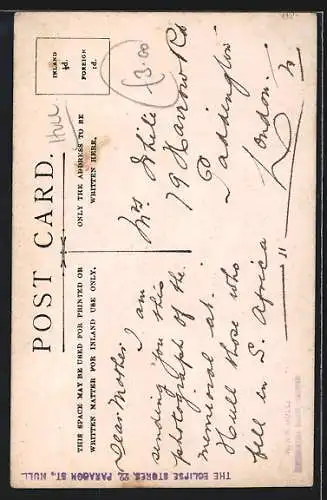 POST CARD.
THIS SPACE MAY BE USED FOR PRINTED OR
WRITTEN MATTER FOR INLAND USE ONLY.
ONLY THE ADDRESS TO BE
WRITTEN HERE.
INLAND
½d.
FOREIGN
1d.
£3.00
Hull
Dear Mother
I am
sending you this
photograph of the
memorial at
Hull those who
fell in S. Africa
Mrs White
79 Harrow Rd
Paddington
London.
W
THE ECLIPSE STORES, 22, PARAGON ST., HULL